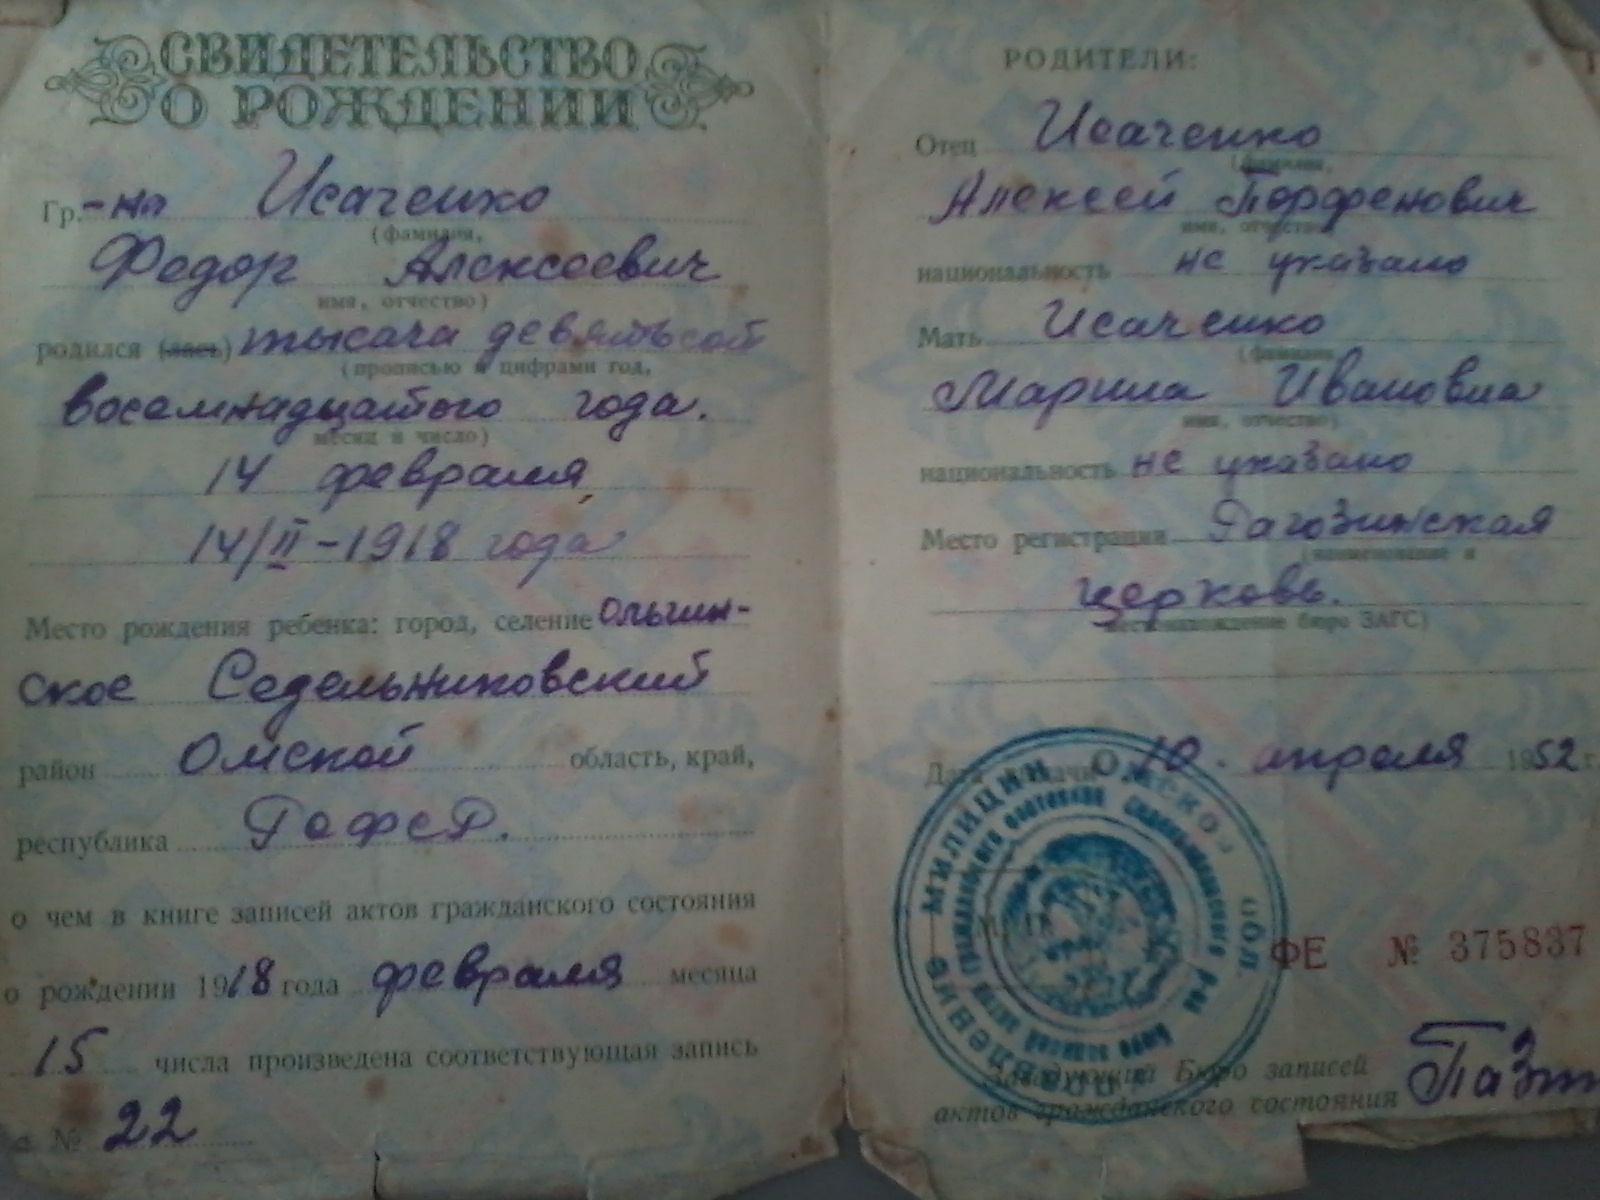 СВИДЕТЕЛЬСТВО
О РОЖДЕНИИ
Гр.-на Исаченко
(фамилия,
Федор Алексеевич
имя, отчество)
родился (лась) тысяча девятьсот
(прописью и цифрами год,
восемнадцатого года.
месяц и число)
14 февраля
14/II-1918 года
Место рождения ребенка: город, селение Ольгин-
ское Седельниковский
район Омской область, край,
республика РСФСР.
о чем в книге записей актов гражданского состояния
о рождении 1918 года февраля месяца
15 числа произведена соответствующая запись
№ 22
РОДИТЕЛИ:
Отец Исаченко
(фамилия,
Алексей Порфенович
имя, отчество)
национальность не указано
Мать Исаченко
(фамилия
Марина Ивановна
имя, отчество)
национальность не указано
Место регистрации Рагозинская
(наименование и
церковь.
местонахождение бюро ЗАГС)
Дата выдачи 10 апреля 1952 г.
УПРАВЛЕНИЕ МИЛИЦИИ ОМСКОЙ ОБЛ.
Бюро записей актов гражданского состояния Седельниковского р-на
М. П.
ФЕ № 375837
Заведующий Бюро записей
актов гражданского состояния